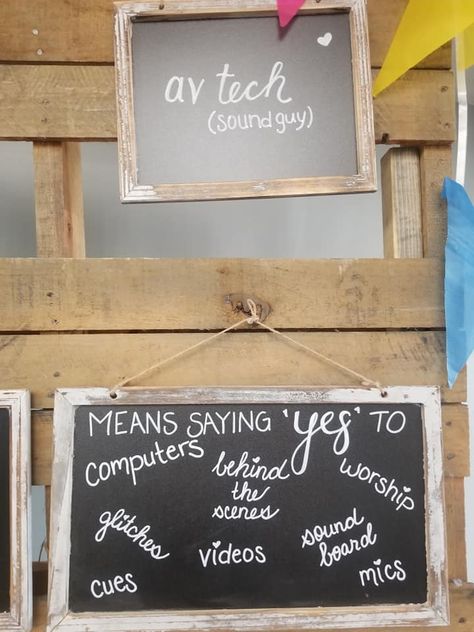 av tech
(sound guy)
MEANS SAYING 'yes' TO
computers
behind
the
scenes
worship
glitches
videos
sound
board
cues
mics